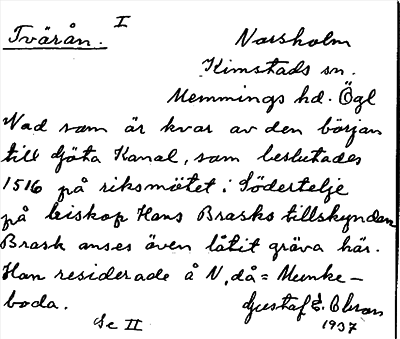 I
Tvärån. Norsholm
Kimstads sn.
Memmings hd. Ögl
Vad som är kvar av den början
till Göta Kanal, som beslutades
1516 på riksmötet i Södertelje
på biskop Hans Brasks tillskyndan
Brask anses även låtit gräva här.
Han residerade å N, då = Munke-
boda. Gustaf E. Olsson
Se II 1937